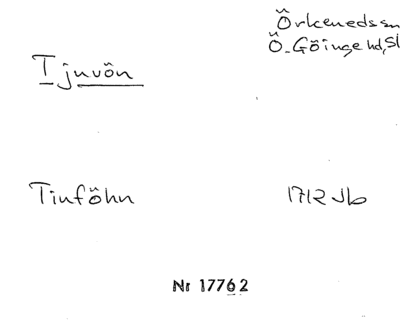 Örkeneds sn
Ö. Göinge hd, Sk
Tjuvön
Tiuföhn 1712 Jb
Nr 17762